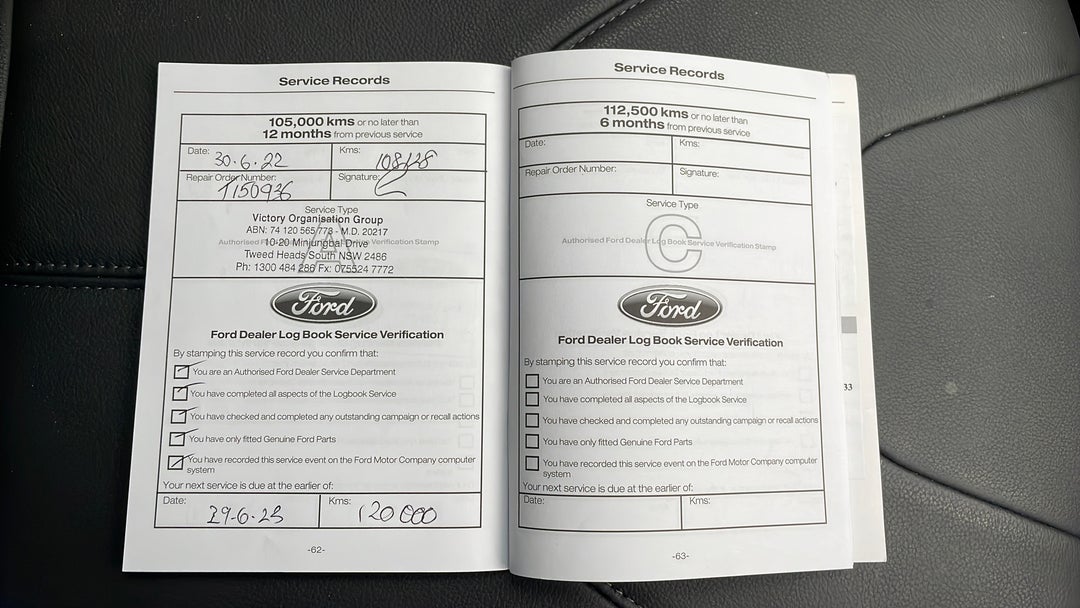 Service Records
105,000 kms or no later than
12 months from previous service
Date: 30.6.22
Kms: 108128
Repair Order Number: T150936
Signature:
Service Type
A
Victory Organisation Group
ABN: 74 120 565 773 - M.D. 20217
Authorised Ford Dealer Log Book Service Verification Stamp
10-20 Minjungbal Drive
Tweed Heads South NSW 2486
Ph: 1300 484 286 Fx: 075524 7772
Ford
Ford Dealer Log Book Service Verification
By stamping this service record you confirm that:
You are an Authorised Ford Dealer Service Department
You have completed all aspects of the Logbook Service
You have checked and completed any outstanding campaign or recall actions
You have only fitted Genuine Ford Parts
You have recorded this service event on the Ford Motor Company computer
system
Your next service is due at the earlier of:
Date: 29-6-23
Kms: 120 000
-62-
Service Records
112,500 kms or no later than
6 months from previous service
Date:
Kms:
Repair Order Number:
Signature:
Service Type
C
Authorised Ford Dealer Log Book Service Verification Stamp
Ford
Ford Dealer Log Book Service Verification
By stamping this service record you confirm that:
You are an Authorised Ford Dealer Service Department
You have completed all aspects of the Logbook Service
You have checked and completed any outstanding campaign or recall actions
You have only fitted Genuine Ford Parts
You have recorded this service event on the Ford Motor Company computer
system
Your next service is due at the earlier of:
Date:
Kms:
-63-
33